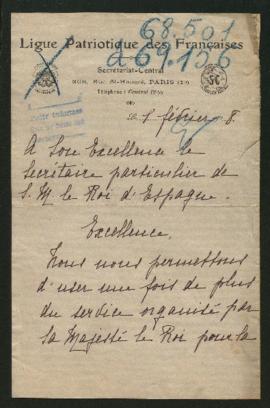 68.501
d 69.156
Ligue Patriotique des Françaises
Secrétariat-Central
Rue St-Honoré, PARIS
Téléphone: Central
février 8.
A Son Excellence le
Secrétaire particulier de
S. M. le Roi d'Espagne.
Excellence,
Nous nous permettons
d'user une fois de plus
du service organisé par
Sa Majesté le Roi pour la